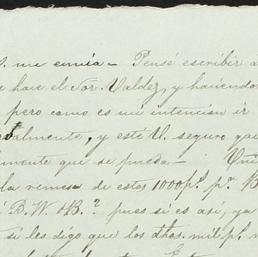 V. me envía - Pensé escribir a
hace el Sor. Valdez, y haciendo
pero como es mi intencion ir
almente, y esté V. seguro que
mente que se pueda -
la remesa de estos 1000 p.s pr.
B. W. & B.? pues si es así, ya
si les digo que los dhos. mil p.s